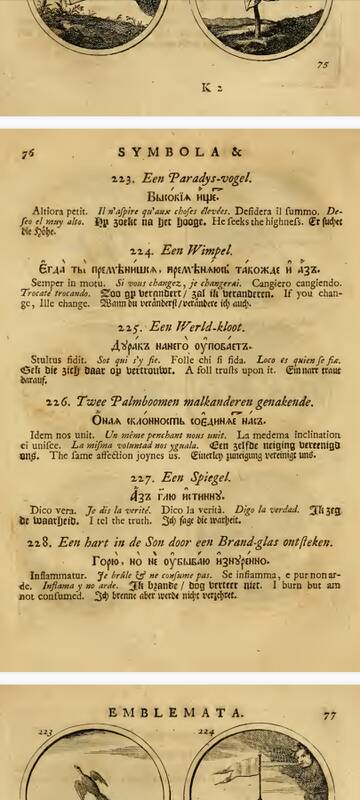 75
K 2
76 SYMBOLA &
223. Een Paradys-vogel.
Высокїѧ ище.
Altiora petit. Il n'aspire qu'aux choses élevées. Desidera il summo. De-
seo el muy alto. Hy zoekt na het hooge. He seeks the highness. Er suchet
die Höhe.
224. Een Wimpel.
Егда ты премѣнишсѧ, премѣнюсь такожде и азъ.
Semper in motu. Si vous changez, je changerai. Cangiero cangiendo.
Trocate trocando. Zoo gy verandert / zal ik veranderen. If you chan-
ge, I'lle change. Wann du veränderst / verändere ich auch.
225. Een Werld-kloot.
Дуракъ нанего оуповаетъ.
Stultus fidit. Sot qui s'y fie. Folle chi si fida. Loco es quien se fia.
Gek die zich daar op vertrouwt. A foll trusts upon it. Ein narr traut
darauf.
226. Twee Palmboomen malkanderen genakende.
Онаѧ склонность соединѧе насъ.
Idem nos unit. Un même penchant nous unit. La medema inclination
ci unisce. La misma voluntad nos yguala. Een zelfde neiging vereenigd
ons. The same affection joynes us. Einerley zuneigung vereinigt uns.
227. Een Spiegel.
Азъ глю истинну.
Dico vera. Je dis la verité. Dico la verità. Digo la verdad. Ik zeg
de waarheid. I tel the truth. Ich sage die warheit.
228. Een hart in de Son door een Brand-glas ontsteken.
Горю, но не оубываю изнуренно.
Inflammatur. Je brûle & ne consume pas. Se inflamma, e pur non ar-
de. Inflama y no arde. Ik brande / dog verteer niet. I burn but am
not consumed. Ich brenne aber werde nicht verzehret.
EMBLEMATA. 77
223 224